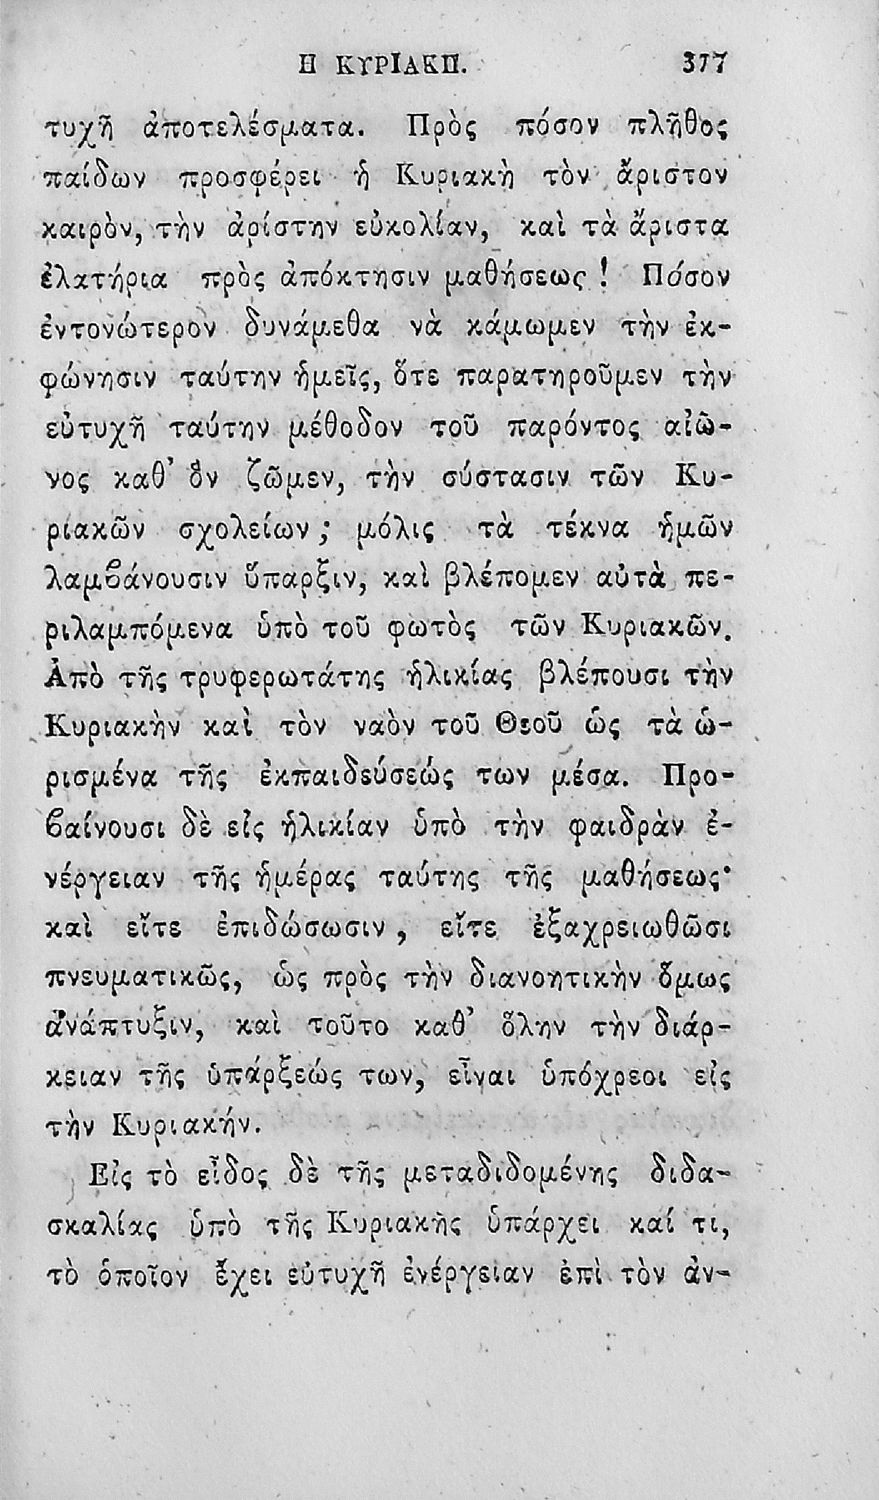 Η ΚΥΡΙΑΚΗ. 377
τυχῆ ἀποτελέσματα. Πρὸς πόσον πλῆθος
παίδων προσφέρει ἡ Κυριακὴ τὸν ἄριστον
καιρὸν, τὴν ἀρίστην εὐκολίαν, καὶ τὰ ἄριστα
ἐλατήρια πρὸς ἀπόκτησιν μαθήσεως ! Πόσον
ἐντονώτερον δυνάμεθα νὰ κάμωμεν τὴν ἐκ-
φώνησιν ταύτην ἡμεῖς, ὅτε παρατηροῦμεν τὴν
εὐτυχῆ ταύτην μέθοδον τοῦ παρόντος αἰῶ-
νος καθ’ ὃν ζῶμεν, τὴν σύστασιν τῶν Κυ-
ριακῶν σχολείων ; μόλις τὰ τέκνα ἡμῶν
λαμϐάνουσιν ὕπαρξιν, καὶ βλέπομεν αὐτὰ πε-
ριλαμπόμενα ὑπὸ τοῦ φωτὸς τῶν Κυριακῶν.
Ἀπὸ τῆς τρυφερωτάτης ἡλικίας βλέπουσι τὴν
Κυριακὴν καὶ τὸν ναὸν τοῦ Θεοῦ ὡς τὰ ὡ-
ρισμένα τῆς ἐκπαιδεύσεώς των μέσα. Προ-
ϐαίνουσι δὲ εἰς ἡλικίαν ὑπὸ τὴν φαιδρὰν ἐ-
νέργειαν τῆς ἡμέρας ταύτης τῆς μαθήσεως·
καὶ εἴτε ἐπιδώσωσιν , εἴτε ἐξαχρειωθῶσι
πνευματικῶς, ὡς πρὸς τὴν διανοητικὴν ὅμως
ἀνάπτυξιν, καὶ τοῦτο καθ’ ὅλην τὴν διάρ-
κειαν τῆς ὑπάρξεώς των, εἶναι ὑπόχρεοι εἰς
τὴν Κυριακήν.
Εἰς τὸ εἶδος δὲ τῆς μεταδιδομένης διδα-
σκαλίας ὑπὸ τῆς Κυριακῆς ὑπάρχει καί τι,
τὸ ὁποῖον ἔχει εὐτυχῆ ἐνέργειαν ἐπὶ τὸν ἀν-